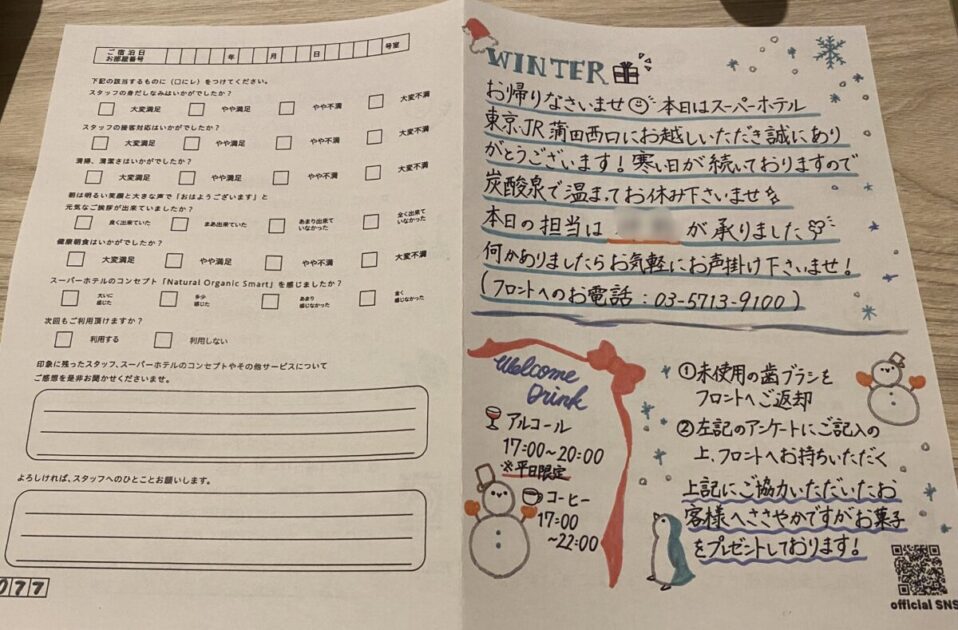 ご宿泊日
お部屋番号
年 月 日 号室
下記の該当するものに（☐にレ）をつけてください。
スタッフの身だしなみはいかがでしたか？
大変満足 やや満足 やや不満 大変不満
スタッフの接客対応はいかがでしたか？
大変満足 やや満足 やや不満 大変不満
清掃、清潔さはいかがでしたか？
大変満足 やや満足 やや不満 大変不満
朝は明るい笑顔と大きな声で「おはようございます」と
元気なご挨拶が出来ていましたか？
良く出来ていた まあ出来ていた あまり出来ていなかった 全く出来ていなかった
健康朝食はいかがでしたか？
大変満足 やや満足 やや不満 大変不満
スーパーホテルのコンセプト「Natural Organic Smart」を感じましたか？
大いに感じた 多少感じた あまり感じなかった 全く感じなかった
次回もご利用頂けますか？
利用する 利用しない
印象に残ったスタッフ、スーパーホテルのコンセプトやその他サービスについて
ご感想を是非お聞かせくださいませ。
よろしければ、スタッフへのひとことお願いします。
077
WINTER
お帰りなさいませ 本日はスーパーホテル
東京・JR蒲田西口にお越しいただき誠にあり
がとうございます！寒い日が続いておりますので
炭酸泉で温まってお休み下さいませ
本日の担当は が承りました
何かありましたらお気軽にお声掛け下さいませ！
(フロントへのお電話：03-5713-9100)
Welcome
Drink
アルコール
17:00~20:00
※平日限定
コーヒー
17:00
~22:00
①未使用の歯ブラシを
フロントへご返却
②左記のアンケートにご記入の
上、フロントへお持ちいただく
上記にご協力いただいたお
客様へささやかですがお菓子
をプレゼントしております！
official SNS